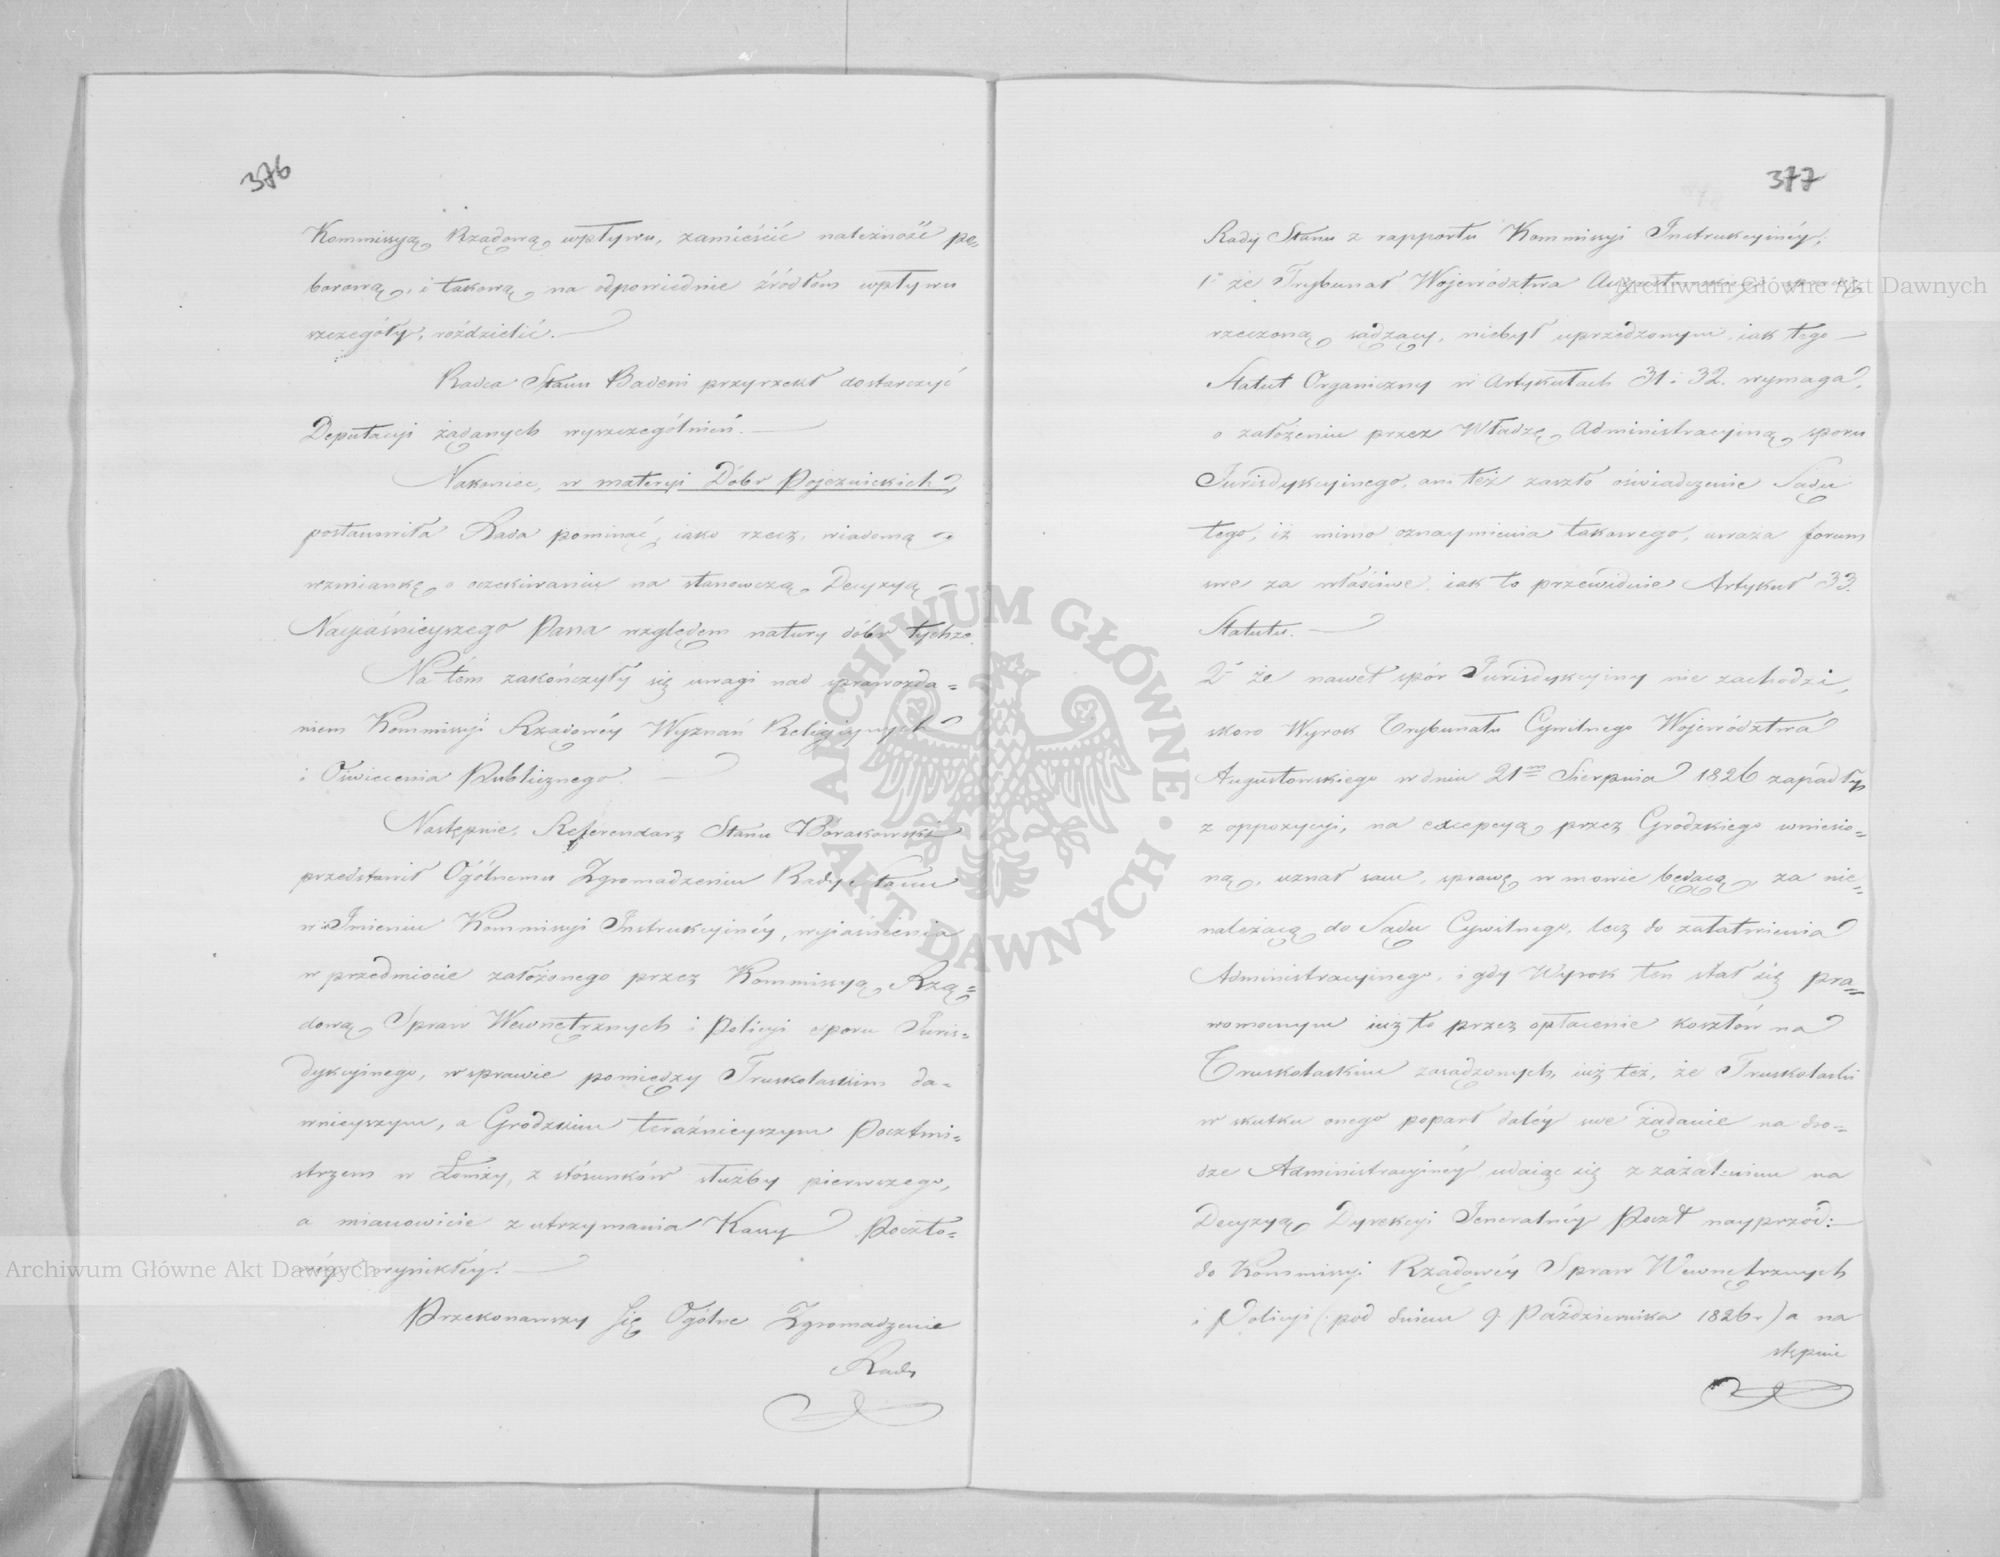 376
Kommissyą Rządową wpływu, zamieścić należność po-
borową, i takową na odpowiednie źródłom wpływu
szczegóły, roździelić.
Radca Stanu Badeni przyrzekł dostarczyć
Deputacyi żądanych wyszczególnień.
Nakoniec, w materyi Dóbr Pojeznickich,
postanowiła Rada pominąć, iako rzecz wiadomą
wzmiankę o oczekiwaniu na stanowczą Decyzyą
Nayiaśnieyszego Pana względem natury dóbr tychże.
Na tém zakończyły się uwagi nad sprawozda=
niem Kommissyi Rządowéy Wyznań Religiynych
i Oświecenia Publicznego.
Następnie, Referendarz Stanu Borakowski
przedstawił Ogólnemu Zgromadzeniu Rady Stanu
w Imieniu Kommissyi Instrukcyinéy, wyiaśnienia
w przedmiocie założonego przez Kommissyą Rzą=
dową Spraw Wewnętrznych i Policyi sporu Juris=
dykcyinego, w sprawie pomiędzy Truskolaskim da=
wnieyszym, a Grodzkim teraźnieyszym Pocztmi=
strzem w Łomży, z stósunków służby pierwszego,
a mianowicie z utrzymania Kassy Poczto=
wéy wynikłéy.
Przekonawszy się Ogólne Zgromadzenie
Rady
377
Rady Stanu z rapportu Kommissyi Instrukcyinéy,
1° że Trybunał Województwa Augustowskiego sprawę
rzeczoną sądzący, niebył uprzedzonym, iak tego
Statut Organiczny w Artykułach 31 i 32. wymaga,
o założeniu przez Władzę Administracyiną sporu
Jurisdykcyinego, ani też zaszło oświadczenie Sądu
tego, iż mimo oznaymienia takowego, uważa forum
swe za właściwe, iak to przewiduie Artykuł 33.
Statutu.
2° że nawet spór Jurisdykcyiny nie zachodzi,
skoro Wyrok Trybunału Cywilnego Województwa
Augustowskiego w dniu 21m Sierpnia 1826 zapadły
z oppozycyi, na excepcyą przez Grodzkiego wniesio=
ną, uznał sam, sprawę w mowie będącą, za nie=
należącą do Sądu Cywilnego, lecz do załatwienia
Administracyinego, i gdy Wyrok ten stał się pra=
womocnym iuż to przez opłacenie kosztów na
Truskolaskim zasądzonych, iuż też, że Truskolaski
w skutku onego poparł daléy swe żądanie na dro=
dze Administracyinéy udaiąc się z zażaleniem na
Decyzyą Dyrekcyi Jeneralnéy Poczt nayprzód:
do Kommissyi Rządowéy Spraw Wewnętrznych
i Policyi (pod dniem 9. Października 1826 r.) a na
stępnie
Archiwum Główne Akt Dawnych
Archiwum Główne Akt Dawnych
ARCHIWUM GŁÓWNE AKT DAWNYCH